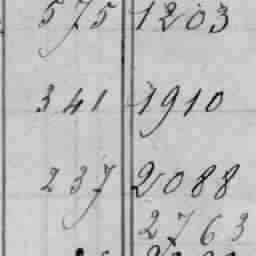 575 1203
341 1910
237 2088
2763